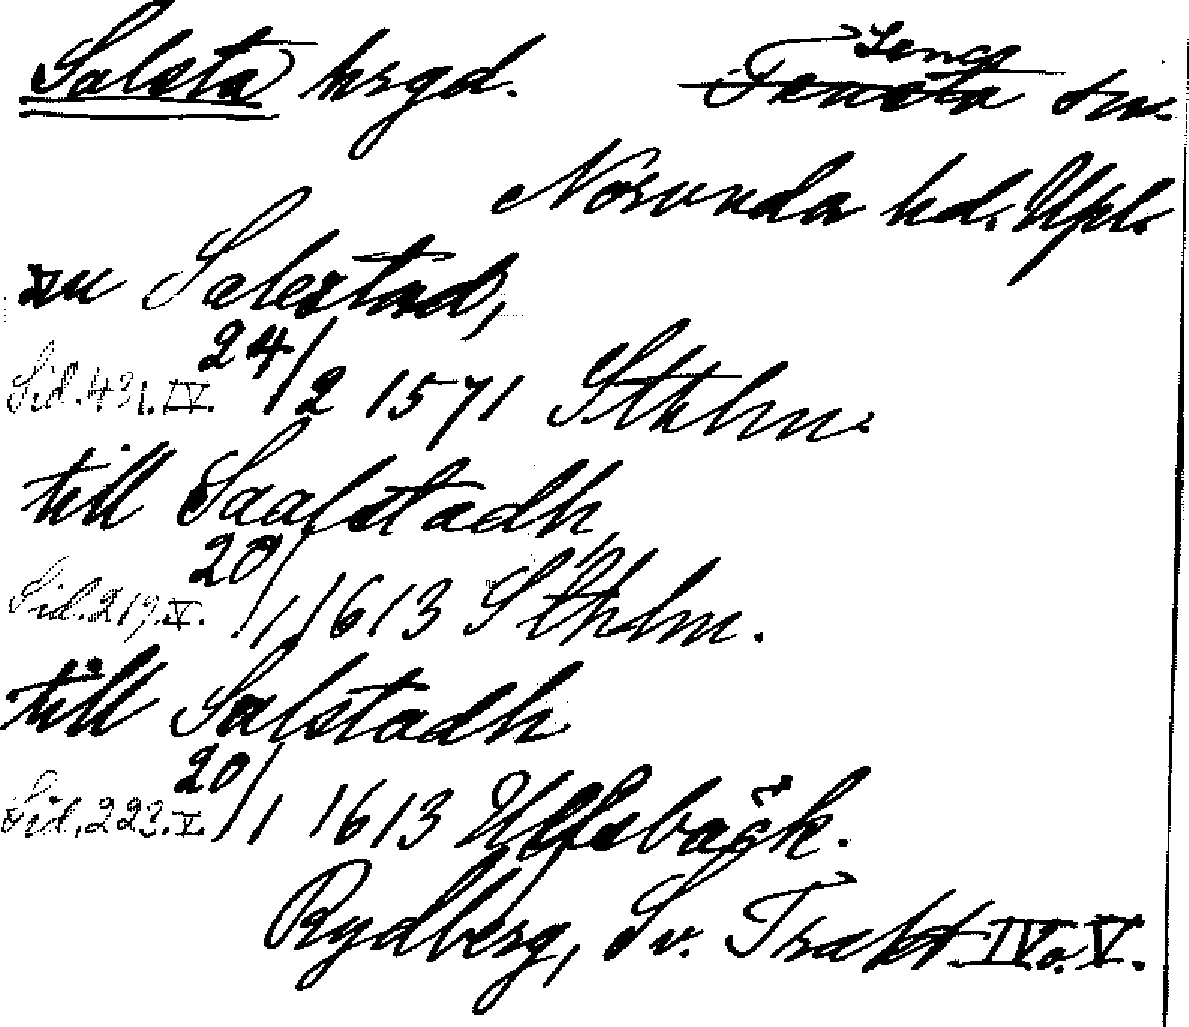 Salsta hrgd. Tensta sn.
Lena
Norunda hd. Upl.
zu Salestad,
Sid. 431. IV. 24/2 1571 Sthlm.
till Saalstadh,
Sid. 219. V. 20/1 1613 Sthlm.
till Salstadh
Sid. 223. V. 20/1 1613 Ulfsbäck.
Rydberg, Sv. Trakt. IV o. V.